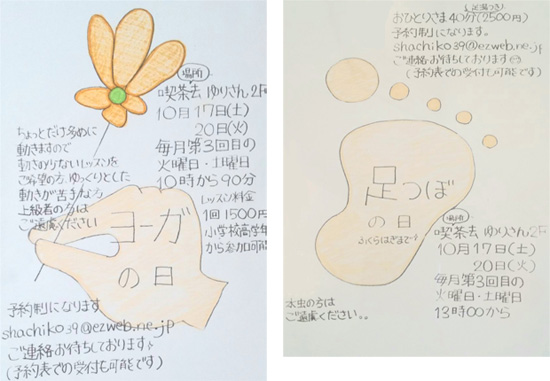 場所
喫茶去 ゆりさん2F
10月17日(土)
20日(火)
毎月第3回目の
火曜日・土曜日
10時から90分
レッスン料金
1回1500円
小学校高学年
から参加可能
ちょっとだけ多めに
動きますので
動き足りないレッスンを
ご希望の方、ゆっくりとした
動きが苦手な方
上級者の方は
ご遠慮ください
ヨーガ
の日
予約制になります
shachiko39@ezweb.ne.jp
ご連絡お待ちしております♪
(予約表での受付も可能です)
(足湯つき)
おひとりさま40分(2500円)
予約制になります。
shachiko39@ezweb.ne.jp
ご連絡お待ちしております
(予約表での受付も可能です)
足つぼ
の日
ふくらはぎまで
場所
喫茶去 ゆりさん2F
10月17日(土)
20日(火)
毎月第3回目の
火曜日・土曜日
13時00から
水虫の方は
ご遠慮ください。。